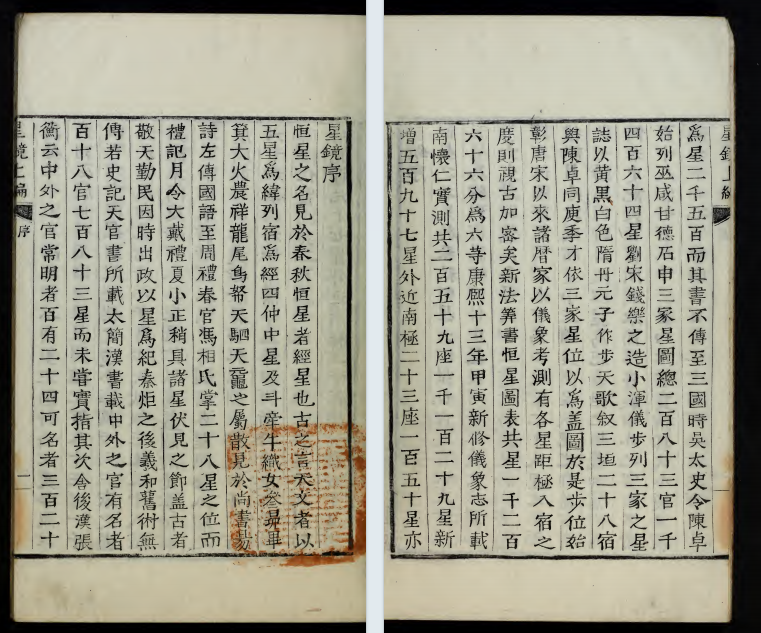 星鏡序
恒星之名見於春秋恒星者經星也古之言天文者以
五星爲緯列宿爲經四仲中星及斗牽牛織女參昴畢
箕大火農祥龍尾鳥帑天駟天黿之屬散見於尚書
詩左傳國語至周禮春官馮相氏掌二十八星之位而
禮記月令大戴禮夏小正稍具諸星伏見之節盖古者
敬天勤民因時出政以星爲紀秦炬之後羲和舊術無
傳若史記天官書所載太簡漢書載中外之官有名者
百十八官七百八十三星而未嘗實指其次舍後漢張
衡云中外之官常明者百有二十四可名者三百二十
星鏡上編 序 一
星鏡上編
爲星二千五百而其書不傳至三國時吳太史令陳卓
始列巫咸甘德石申三家星圖總二百八十三官一千
四百六十四星劉宋錢樂之造小渾儀步列三家之星
誌以黃黑白色隋丹元子作步天歌叙三垣二十八宿
與陳卓同庾季才依三家星位以爲盖圖於是步位始
彰唐宋以來諸曆家以儀象考測有各星距極入宿之
度則視古加密矣新法筭書恒星圖表共星一千二百
六十六分爲六等康熙十三年甲寅新修儀象志所載
南懷仁實測共二百五十九座一千一百二十九星新
增五百九十七星外近南極二十三座一百五十星亦